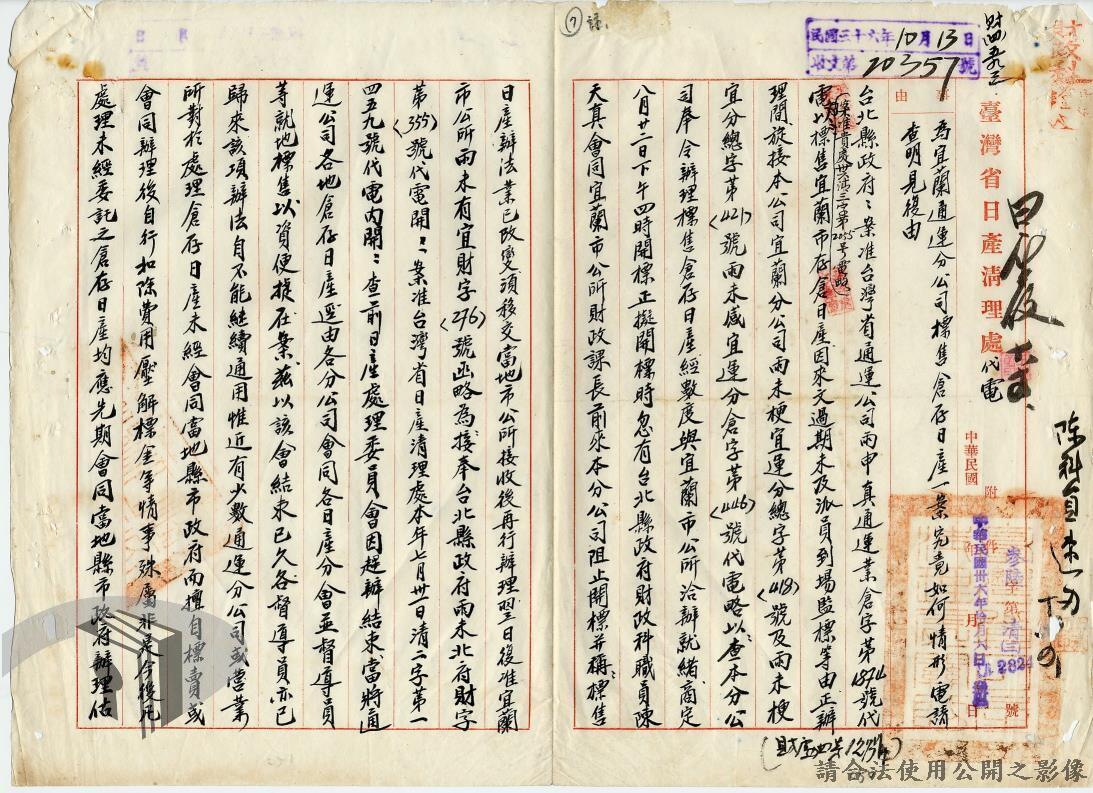 財四第五九三
民國三十六年10月13日
收文第20357號
臺灣省日產清理處代電
事由
為宜蘭通運分公司標售倉存日產一案究竟如何情形電請
查明見復由
附件
中華民國
中華民國卅六年拾月
字第
號
2824
台北縣政府：案准台灣省通運公司雨申真通運業倉字第1874號代
電以標售宜蘭市存倉日產因來文過期未及派員到場監標等由正辦
理間旋接本公司宜蘭分公司雨未梗宜運分總字第〈418〉號及雨未梗
宜分總字第〈421〉號雨未感宜運分倉字第〈446〉號代電略以：查本分公
司奉令辦理標售倉存日產經數度與宜蘭市公所洽辦就緒商定
八月廿二日下午四時開標正擬開標時忽有台北縣政府財政科職員陳
天真會同宜蘭市公所財政課長前來本分公司阻止開標并稱：標售
日產辦法業已改變須移交當地市公所接收後再行辦理翌三日復准宜蘭
市公所雨未有宜財字〈276〉號函略為接奉台北縣政府雨未北府財字
第〈355〉號代電開：「案准台灣省日產清理處本年七月卅一日清二字第一
四五九號代電內開：查前日產處理委員會因趕辦結束當將通
運公司各地倉存日產選由各分公司會同各日產分會並督導員
等就地標售以資便捷在案茲以該會結束已久各督導員亦已
歸來該項辦法自不能継續通用惟近有少數通運分公司或營業
所對於處理倉存日產未經會同當地縣市政府而擅自標賣或
會同辦理後自行扣除費用壓解標金等情事殊屬非是今後凡
處理未經委託之倉存日產均應先期會同當地縣市政府辦理估
請合法使用公開之影像